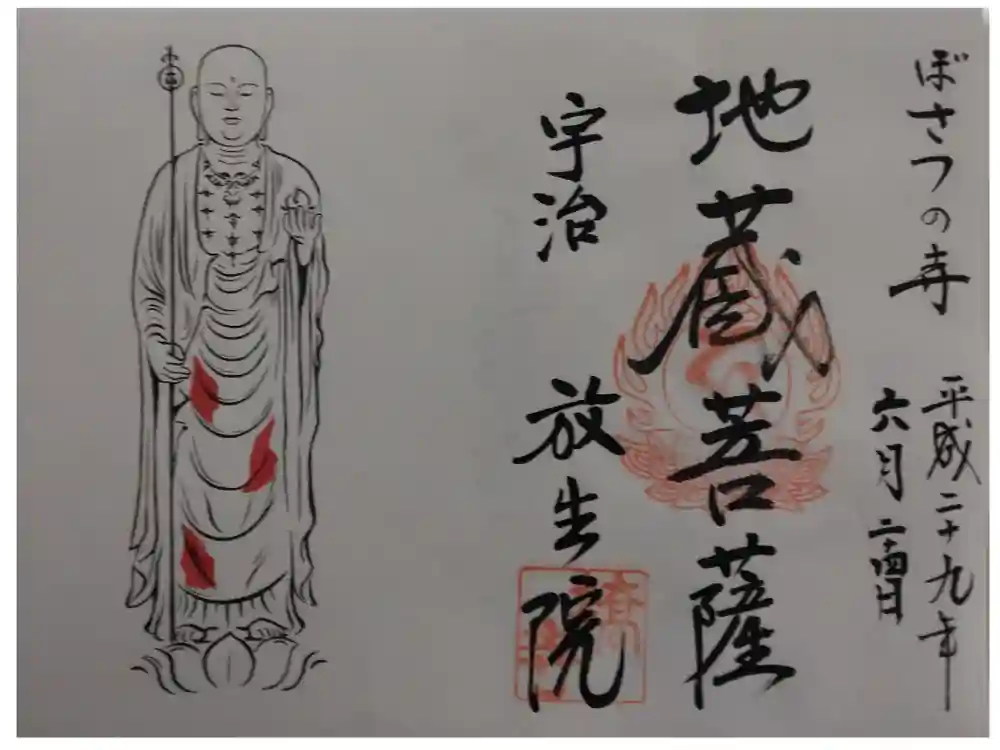 ぼさつの寺
平成二十九年
六月二十四日
地蔵菩薩
宇治 放生院